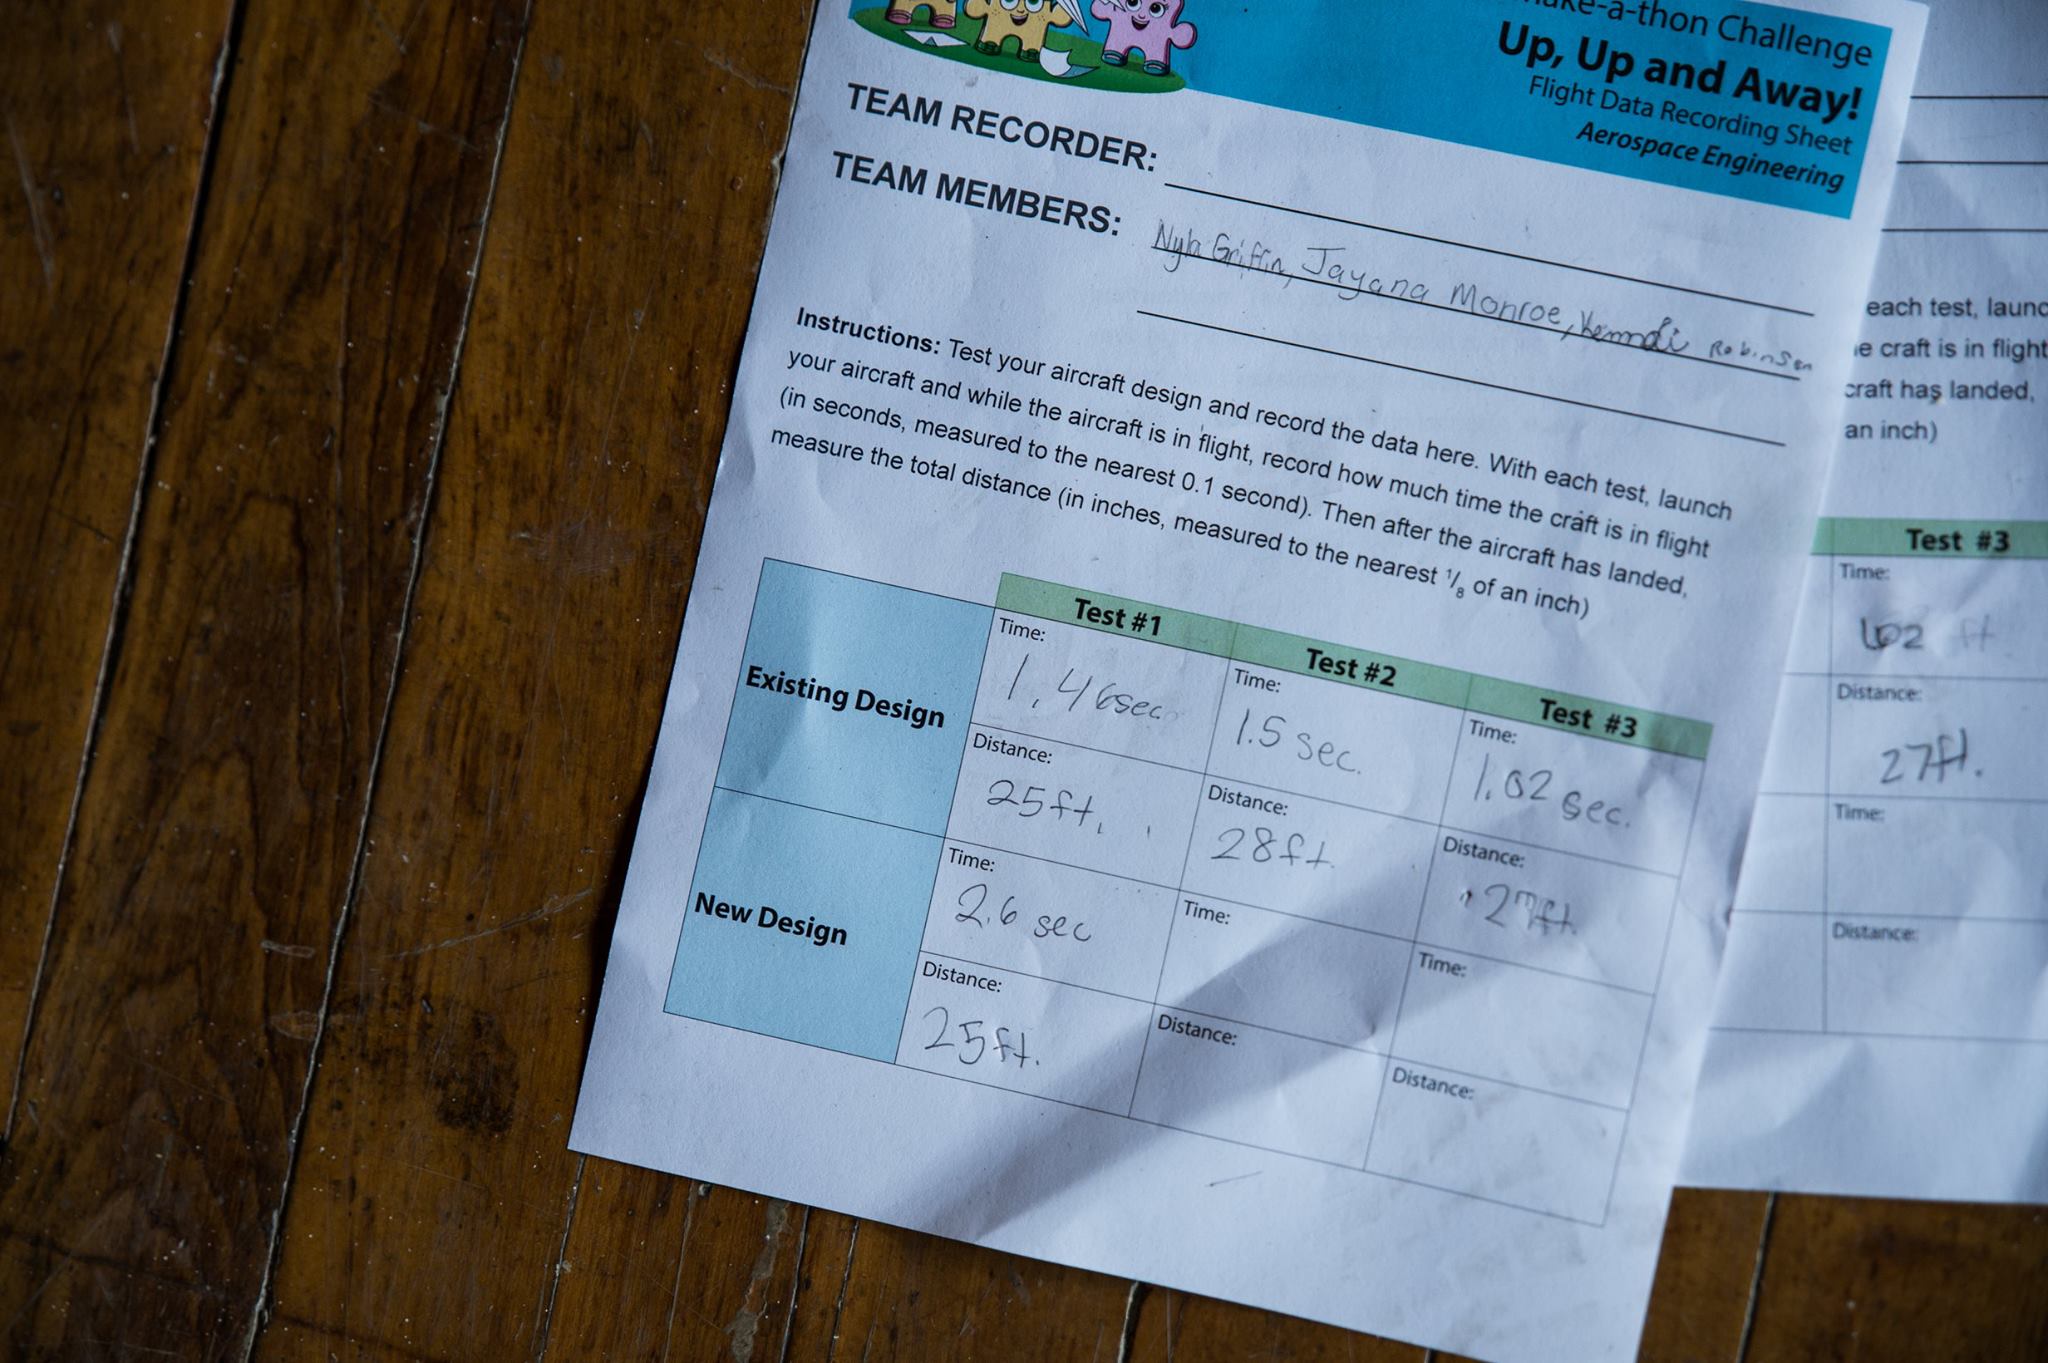 ke-a-thon Challenge
Up, Up and Away!
Flight Data Recording Sheet
Aerospace Engineering
TEAM RECORDER:
TEAM MEMBERS: Nyla Griffin, Jayana Monroe, Robinson
Instructions: Test your aircraft design and record the data here. With each test, launch
your aircraft and while the aircraft is in flight, record how much time the craft is in flight
(in seconds, measured to the nearest 0.1 second). Then after the aircraft has landed,
measure the total distance (in inches, measured to the nearest 1/8 of an inch)
Test #1 Test #2 Test #3
Existing Design
Time: Time: Time:
1.46sec 1.5 sec. 1.02 sec.
Distance: Distance: Distance:
25ft. 28ft. 27ft.
New Design
Time: Time: Time:
2.6 sec
Distance: Distance: Distance:
25ft.
each test, launc
e craft is in flight
craft has landed,
an inch)
Test #3
Time:
ft
Distance:
27ft.
Time:
Distance: